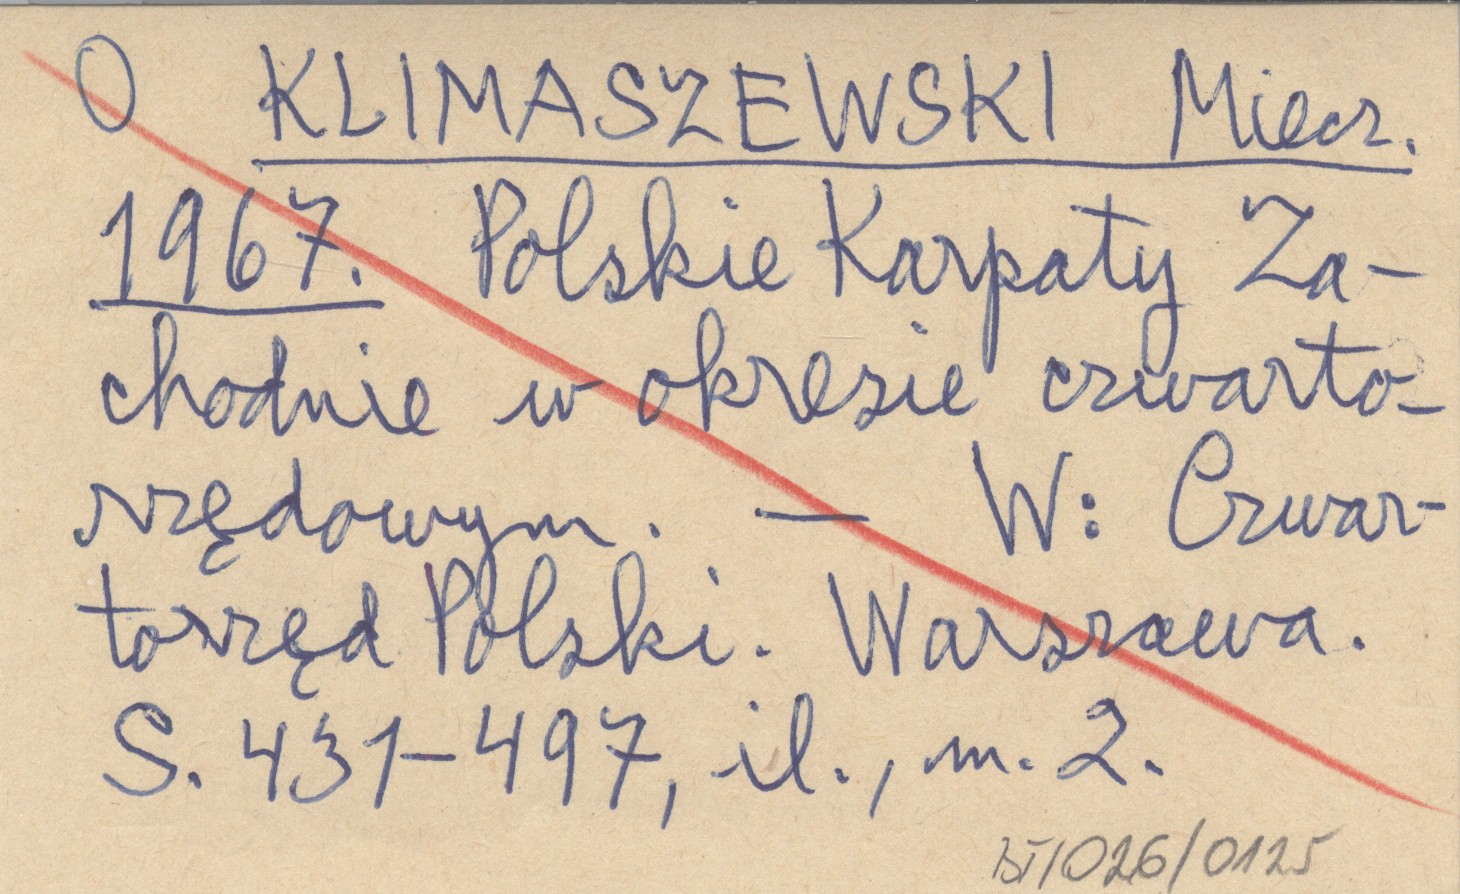 O KLIMASZEWSKI Miecz.
1967. Polskie Karpaty Za-
chodnie w okresie czwarto-
rzędowym. — W: Czwar-
torzęd Polski. Warszawa.
S. 431-497, il., m. 2.
BT/026/0125